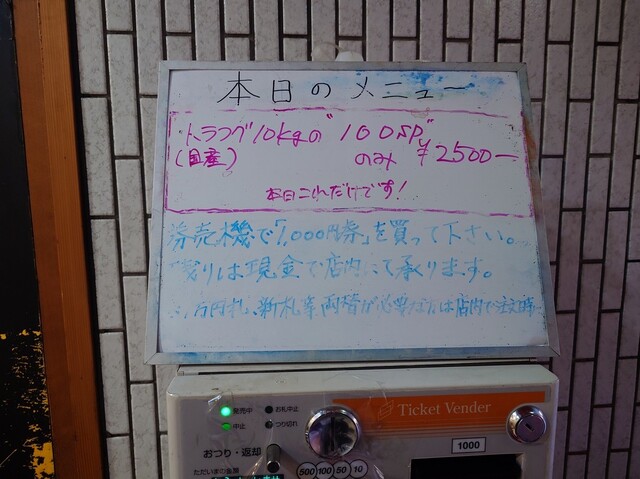 本日のメニュー
トラフグ10kgの"100SP"
(国産) のみ ¥2500ー
本日これだけです!
券売機で「1,000円券」を買って下さい。
残りは現金で店内にて承ります。
万円札、新札等両替が必要な方は店内で注文時
発売中 お札中止
中止 つり切れ
Ticket Vender
おつり・返却
1000
500 100 50 10